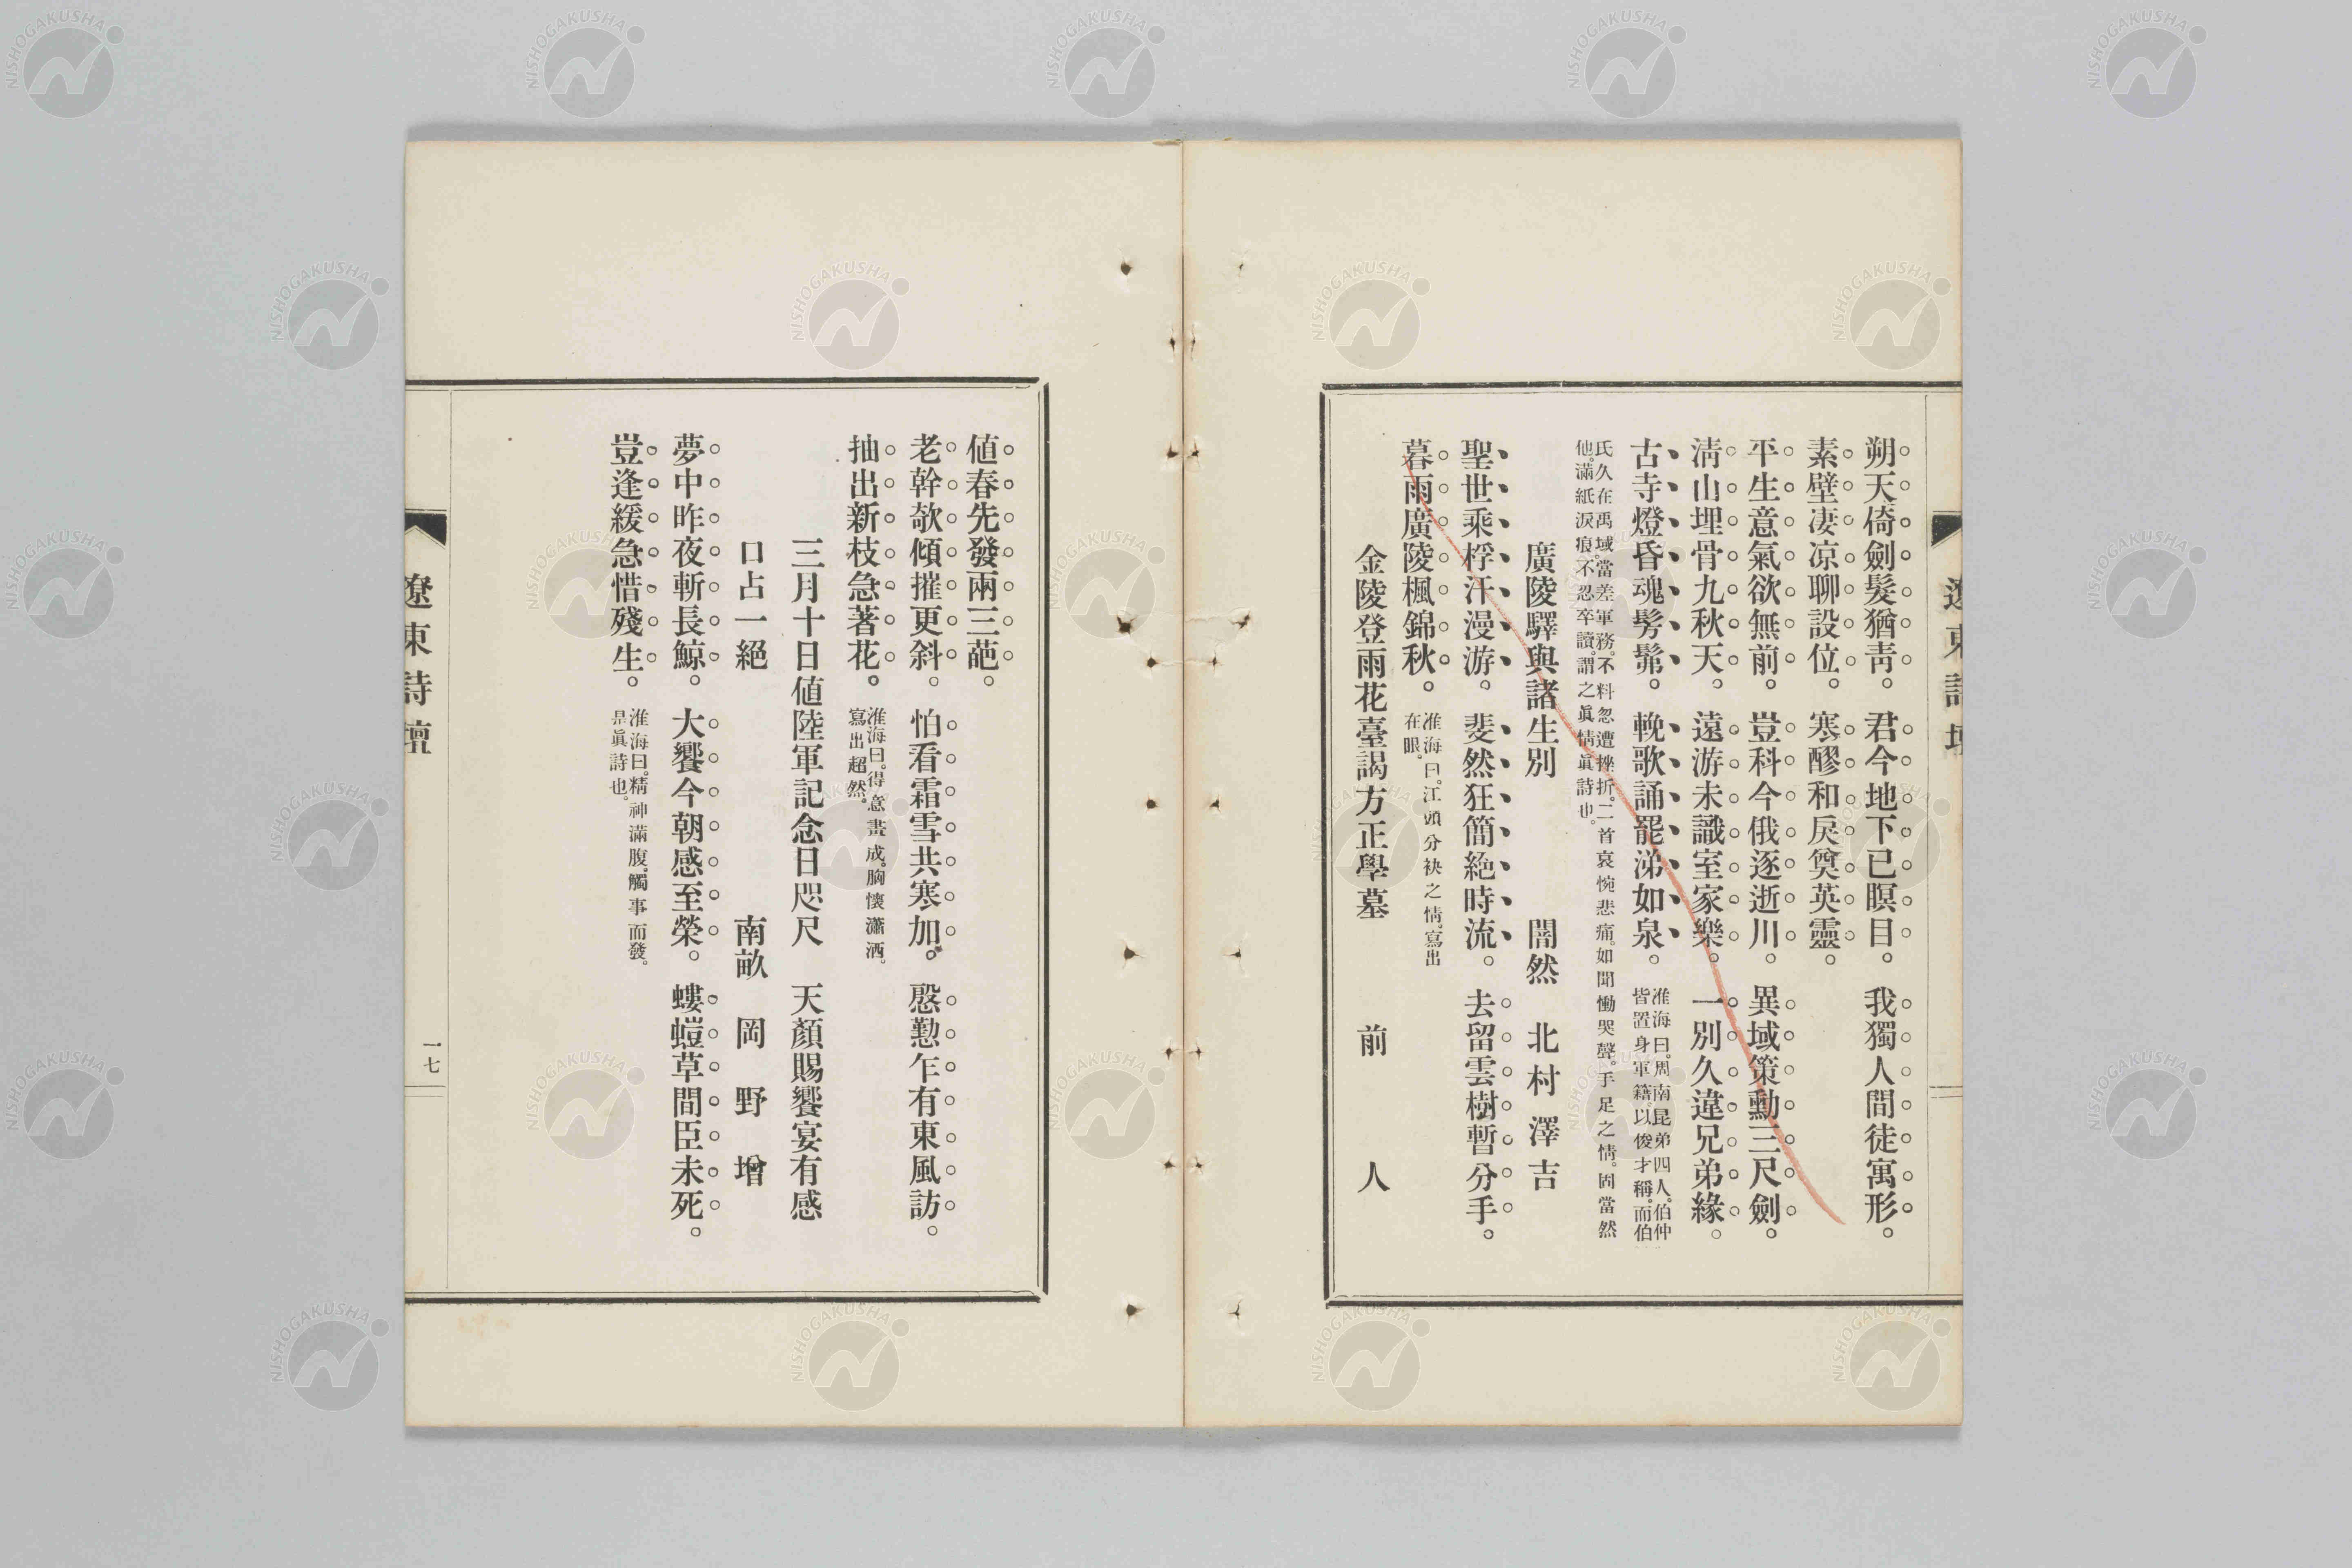 朔天倚劍髮猶靑。君今地下已瞑目。我獨人間徒寓形。
素壁凄凉聊設位。寒醪和戾奠英靈。
平生意氣欲無前。豈科今俄逐逝川。異域策勳三尺劍。
淸山埋骨九秋天。遠游未識室家樂。一別久違兄弟緣。
古寺燈昏魂髣髴。輓歌誦罷涕如泉。淮海曰。周南昆弟四人。伯仲
皆置身軍籍。以俊才稱。而伯
氏久在禹域。當差軍務。不料忽遭挫折。二首哀惋悲痛。如聞慟哭聲。手足之情。固當然
他。滿紙淚痕。不忍卒讀。謂之眞情眞詩也。
廣陵驛與諸生別 闇然 北村澤吉
聖世乘桴汗漫游。斐然狂簡絶時流。去留雲樹暫分手。
暮雨廣陵楓錦秋。淮海曰。江頭分袂之情。寫出
在眼。
金陵登雨花臺謁方正學墓 前人
値春先發兩三葩。
老幹欹傾摧更斜。怕看霜雪共寒加。慇懃乍有東風訪。
抽出新枝急著花。淮海曰。得意畫成。胸懷瀟洒。
寫出超然。
三月十日値陸軍記念日咫尺 天顏賜饗宴有感
口占一絕 南畝 岡野增
夢中昨夜斬長鯨。大饗今朝感至榮。螻螘草間臣未死。
豈逢緩急惜殘生。淮海曰。精神滿腹。觸事而發。
是眞詩也。
遼東詩壇
一七